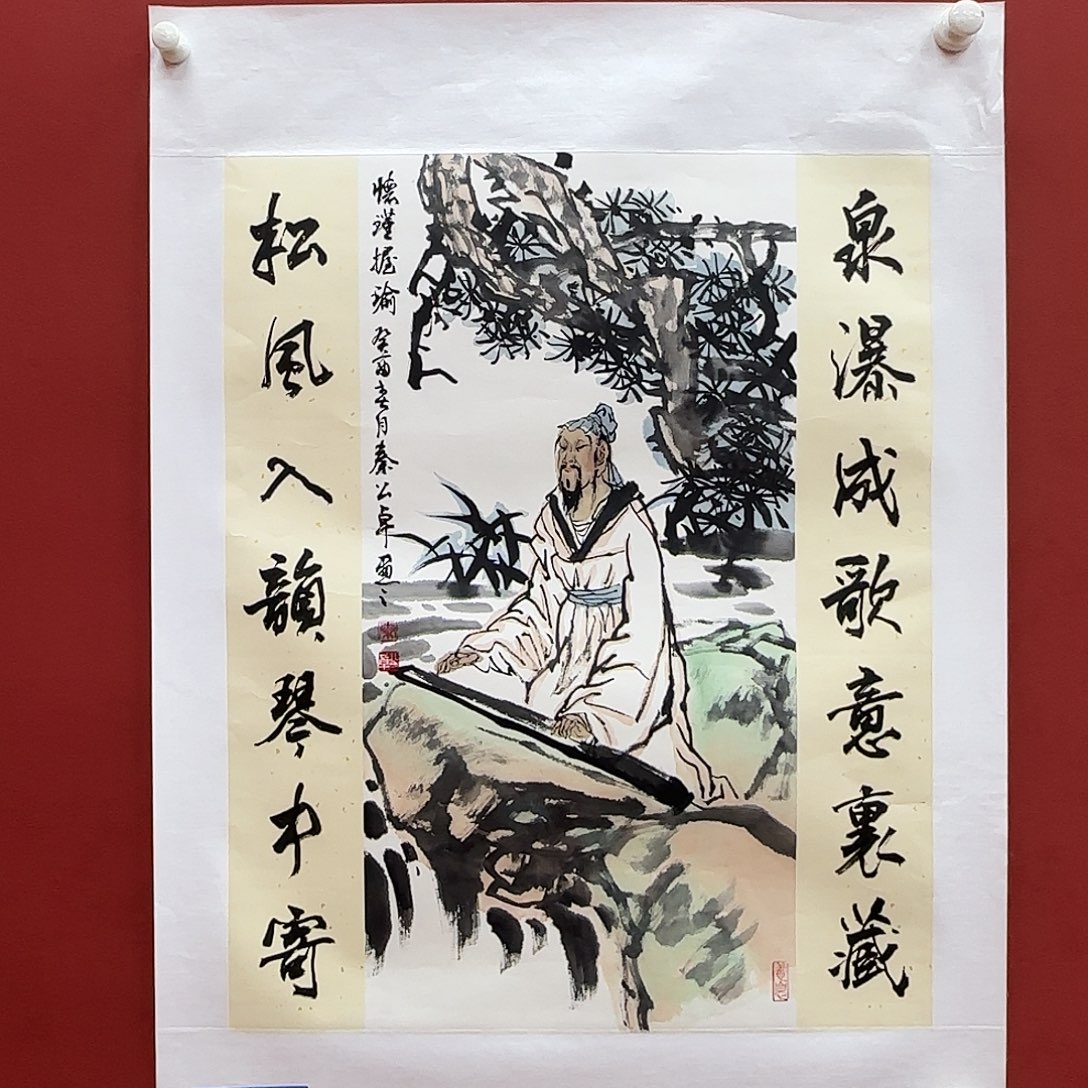 泉瀑成歌意裏藏
懷瑾握瑜 癸酉春月秦公卓画之
松風入韻琴中寄